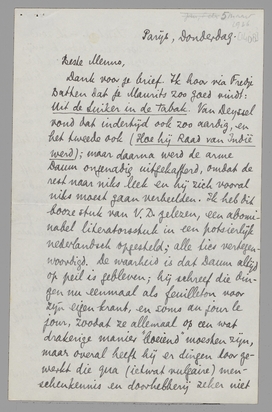 Parijs, Donderdag.
Beste Menno,
Dank voor je brief. Ik hoor via Fredje
Batten dat je Maurits zoo goed vindt:
Uit de Suiker in de Tabak. Van Deyssel
vond dat indertijd ook zoo aardig, en
het tweede ook (Hoe hij Raad van Indië
werd); maar daarna werd de arme
Daum ongenadig uitgekafferd, omdat de
rest naar niks leek en hij zich vooral
niks moest gaan verbeelden. Ik heb dit
booze stuk van V.D. gelezen, een abomi-
nabel literatorsstuk in een potsierlijk
nederlandsch opgesteld; alle lies vertegen-
woordigd. De waarheid is dat Daum altijd
op peil is gebleven; hij schreef die din-
gen nu eenmaal als feuilleton voor
zijn eigen krant, en soms au jour le
jour, zoodat ze allemaal op een wat
drakerige manier "boeiend" moesten zijn,
maar overal heeft hij er dingen door ge-
werkt die qua (ietwat vulgaire) men-
schenkennis en doorkneedheid zeker niet